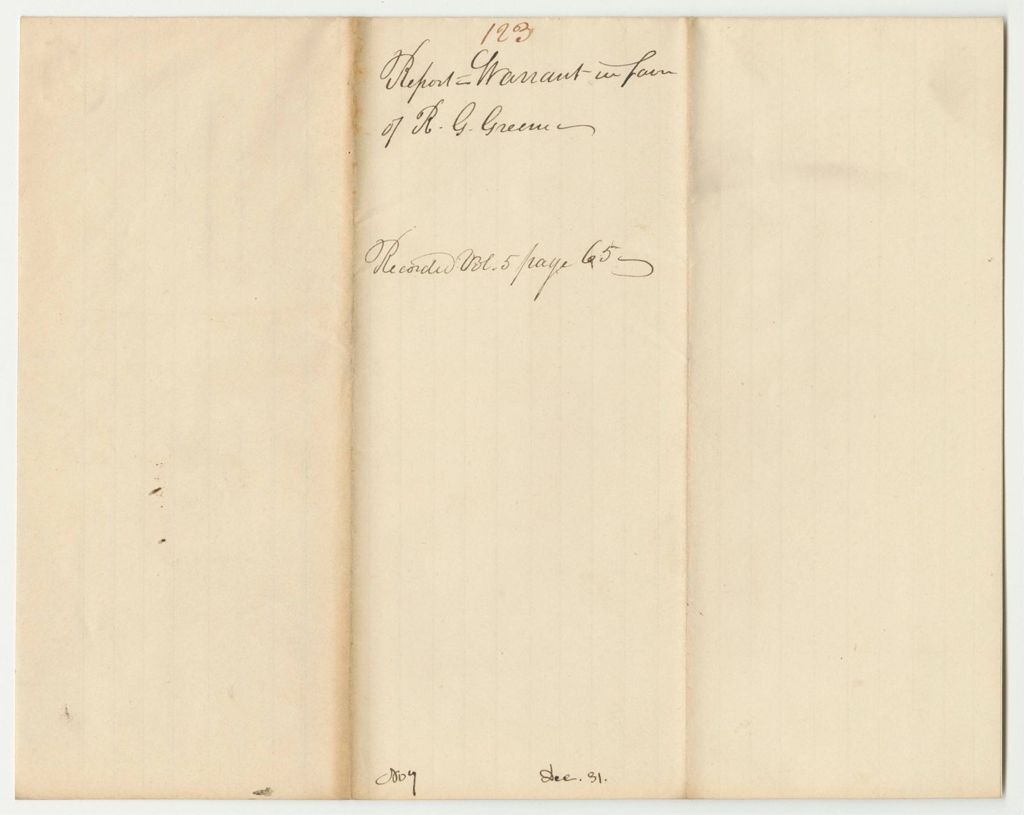 123
Report = Warrant in favor
of R. G. Greene
Recorded Vol. 5 page 65
Dec. 31.